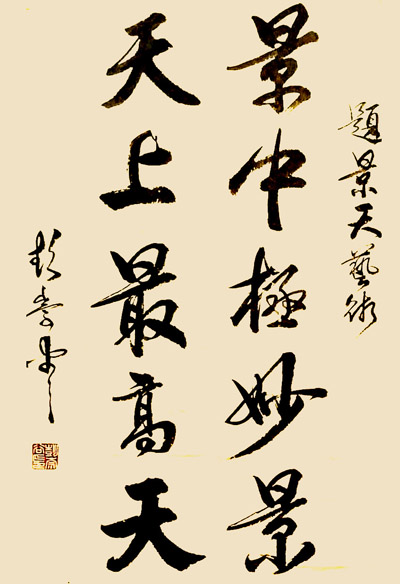 題景天藝術
景中極妙景
天上最高天